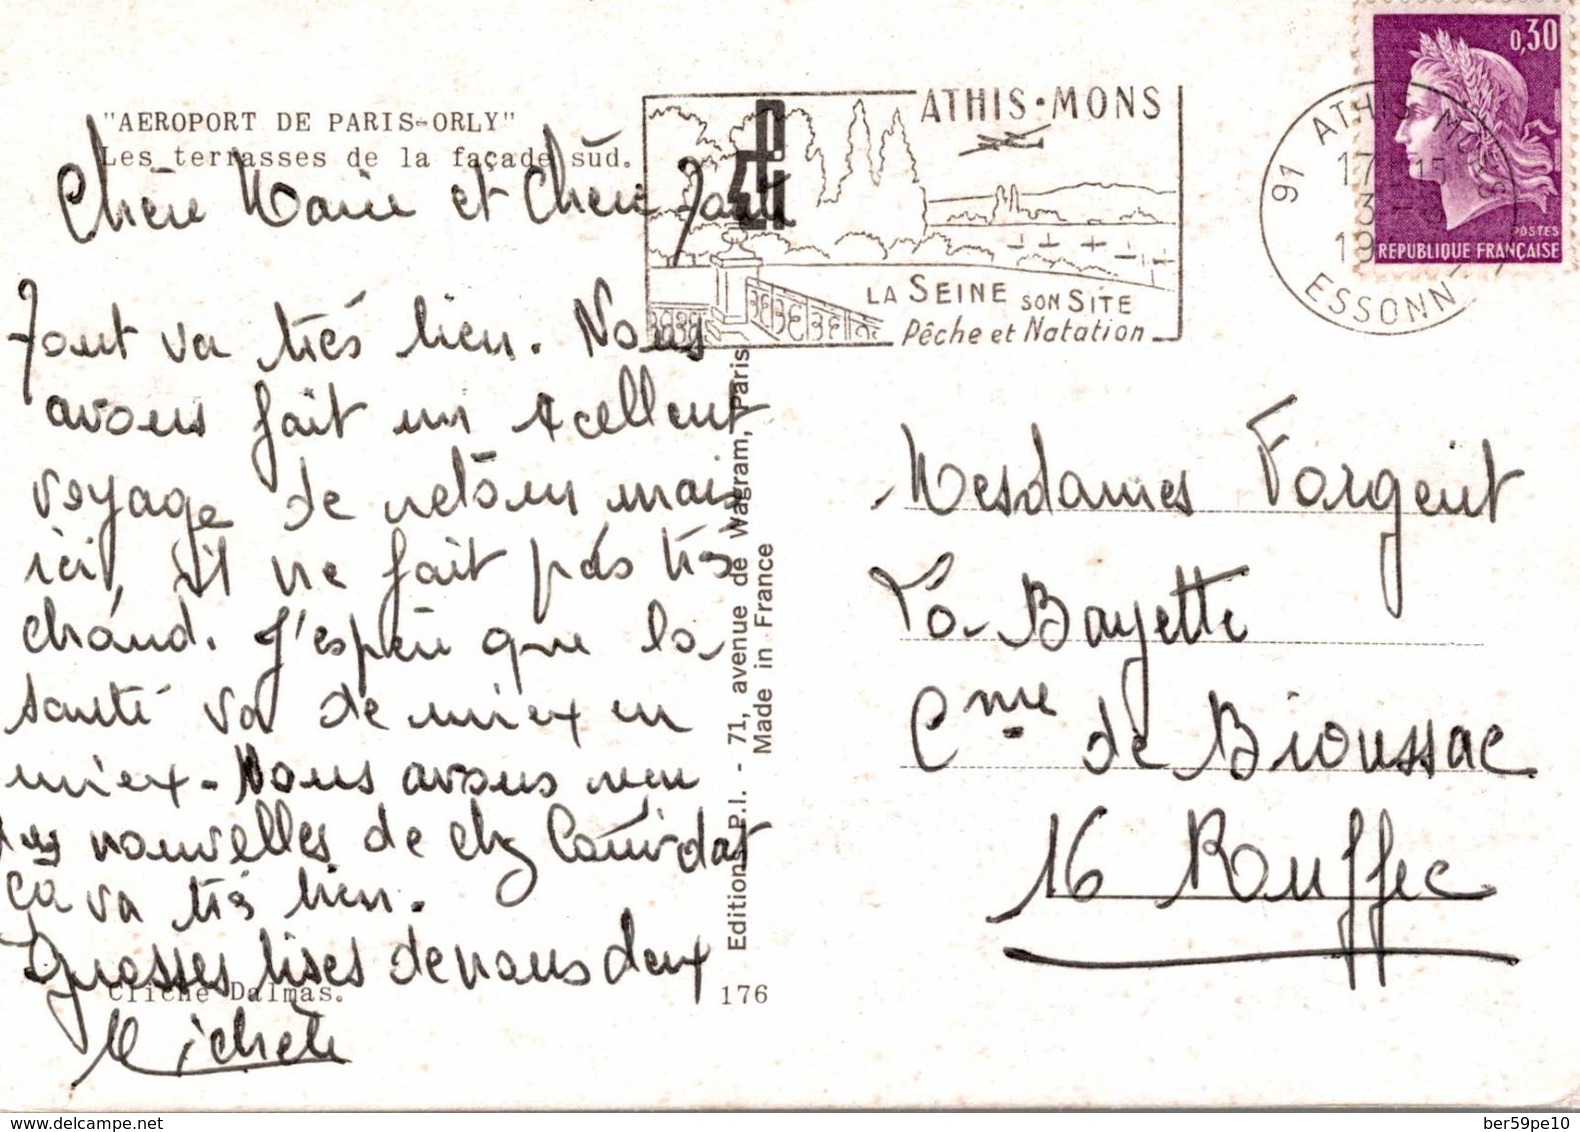 "AEROPORT DE PARIS-ORLY"
Les terrasses de la façade sud.
Chère Marie et Chère
Tout va très bien. Nous
avons fait un excellent
voyage de retour mais
ici, il ne fait pas très
chaud. J'espère que la
santé va de mieux en
mieux - Nous avons reçu
des nouvelles de chez
ça va très bien.
Grosses bises de nous deux
Michèle
Cliché Dalmas.
176
Editions P.I. - 71, avenue de Wagram, Paris
Made in France
ATHIS-MONS
LA SEINE SON SITE
Pêche et Natation
91 ATHIS-MONS
17 15
3 -
19
ESSONN
0,30
POSTES
REPUBLIQUE FRANÇAISE
Mesdames Forgerit
La Bayette
Cne de Bioussac
16 Ruffec
delcampe.net
ber59pe10